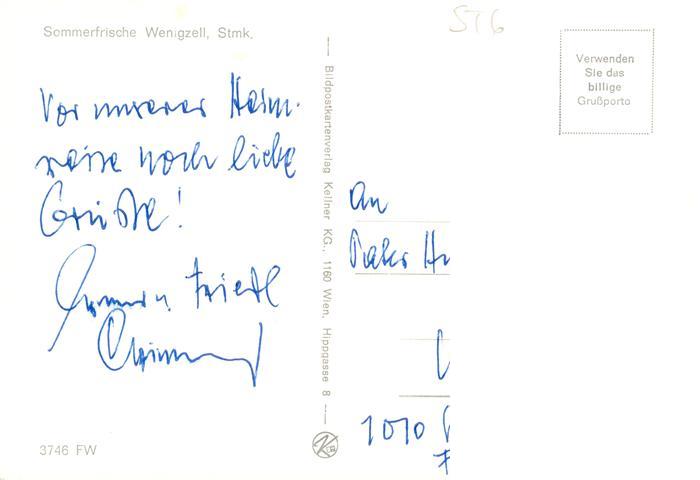 Sommerfrische Wenigzell, Stmk.
ST6
Verwenden
Sie das
billige
Grußporto
Vor unserer Heim-
reise noch liebe
Grüße!
Friedl
Bildpostkartenverlag Kellner KG., 1160 Wien, Hippgasse 8
An
1010
3746 FW